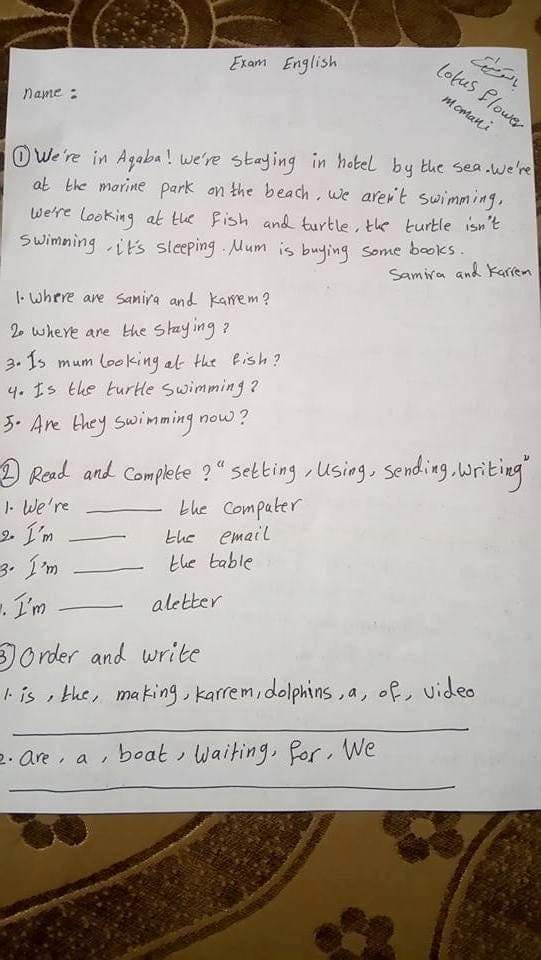 Exam English
lotus flower
momani
name :
① We're in Aqaba! we're staying in hotel by the sea. we're
at the marine park on the beach. we aren't swimming,
we're looking at the fish and turtle, the turtle isn't
swimming, it's sleeping. Mum is buying some books.
Samira and Karrem
1. where are samira and Karrem?
2. where are the staying?
3. Is mum looking at the fish?
4. Is the turtle swimming?
5. Are they swimming now?
② Read and complete ? "setting, using, sending, writing"
1. We're ______ the computer
2. I'm ______ the email
3. I'm ______ the table
. I'm ______ aletter
③ Order and write
1. is, the, making, karrem, dolphins, a, of, video
2. are, a, boat, waiting, for, We